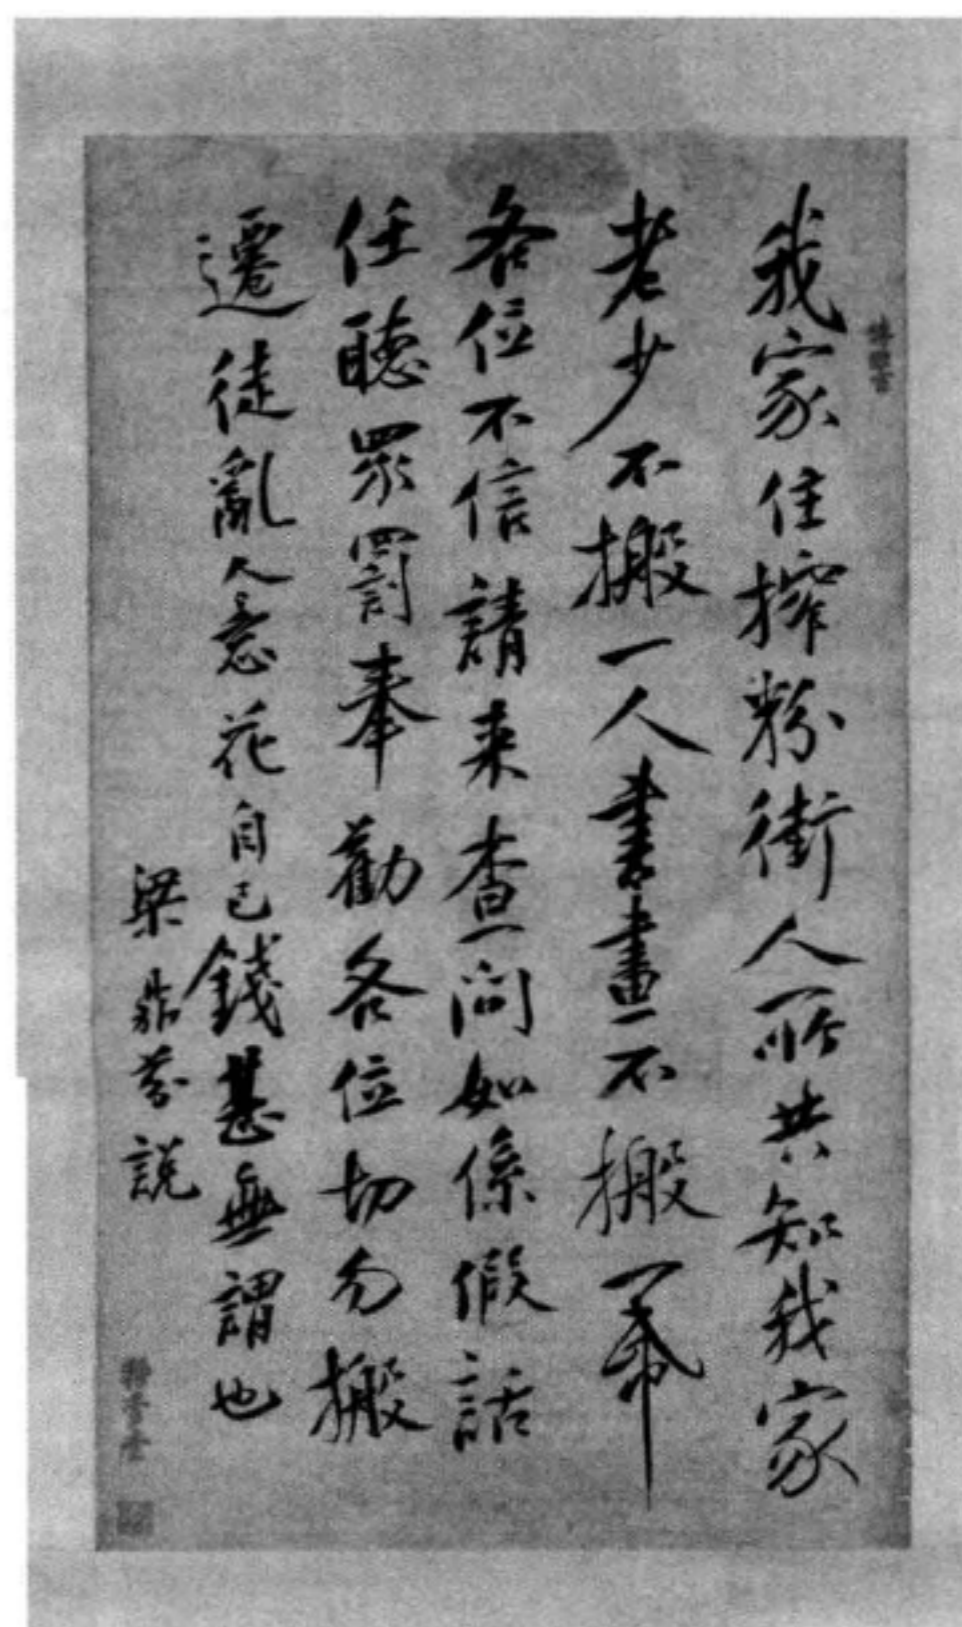 我家住榨粉街人所共知我家
老少不搬一人書畫不搬一卷
各位不信請來查問如係假話
任聽眾罰奉勸各位切勿搬
遷徒亂人意花自己錢甚無謂也
梁鼎芬說